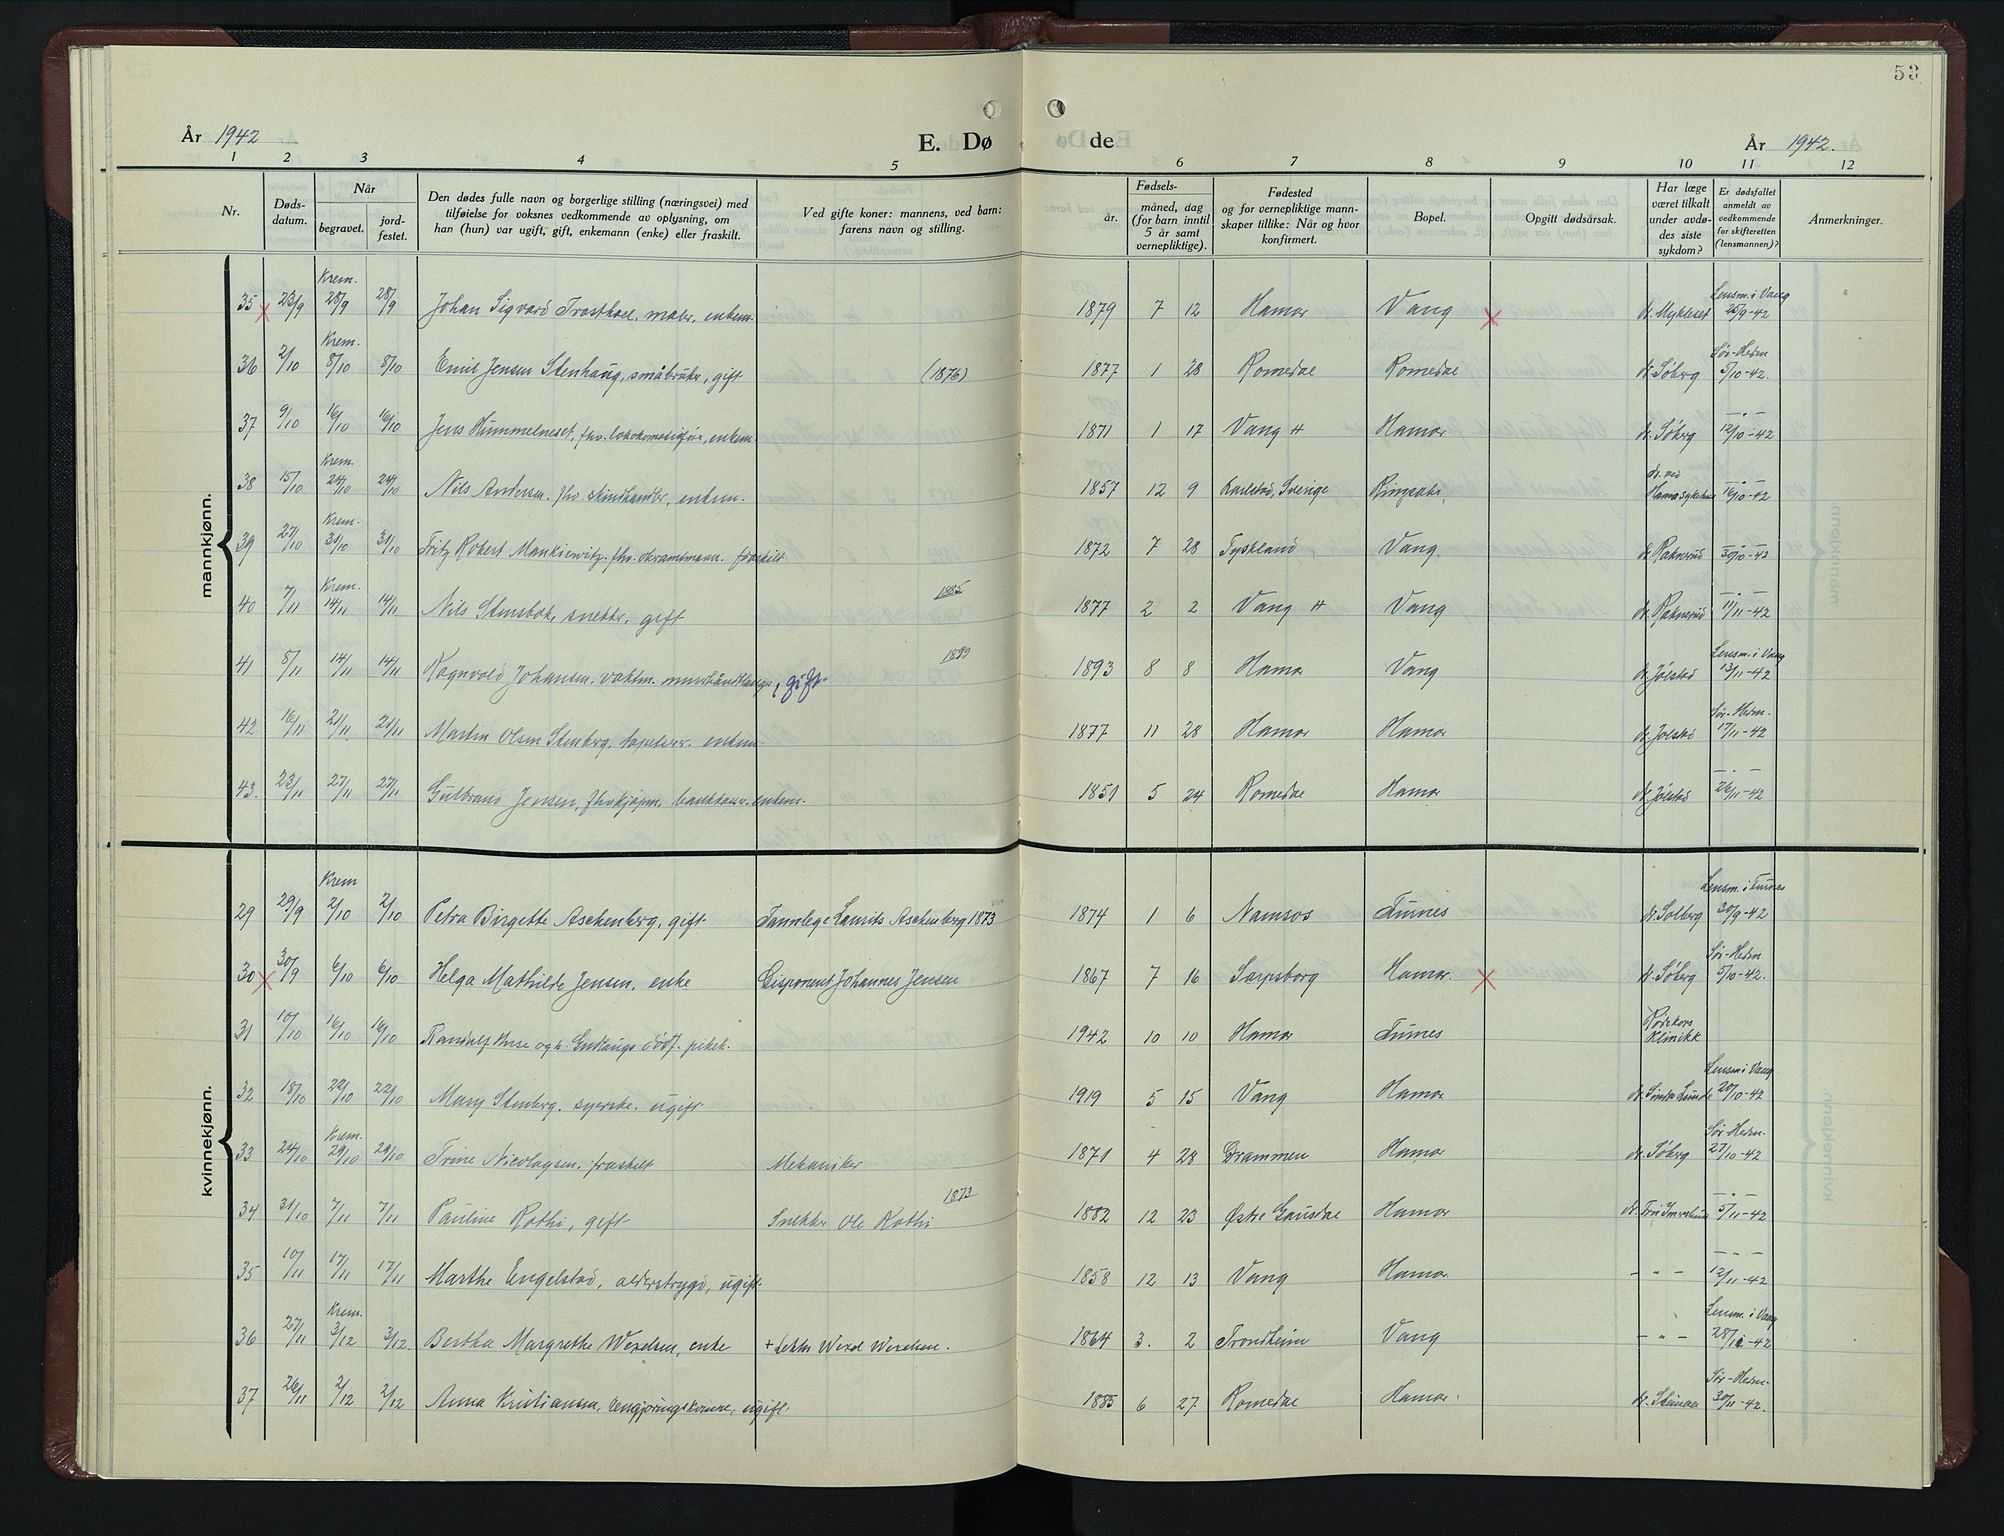 53
År 1942
E. Dø
de
År 1942.
1 2 3 4 5 6 7 8 9 10 11 12
Nr.
Døds-
datum.
Når
begravet.
jord-
festet.
Den dødes fulle navn og borgerlige stilling (næringsvei) med
tilføielse for voksnes vedkommende av oplysning, om
han (hun) var ugift, gift, enkemann (enke) eller fraskilt.
Ved gifte koner: mannens, ved barn:
farens navn og stilling.
år.
Fødsels-
måned, dag
(for barn inntil
5 år samt
vernepliktige).
Fødested
og for vernepliktige mann-
skaper tillike: Når og hvor
konfirmert.
Bopel.
Opgitt dødsårsak.
Har læge
været tilkalt
under avdø-
des siste
sykdom?
Er dødsfallet
anmeldt av
vedkommende
for skifteretten
(lensmannen)?
Anmerkninger.
mankjønn.
Krem. Lensm. i Vang
35 23/9 28/9 28/9 Johan Sigvard Trosthoel, maler, enkem. 1879 7 12 Hamar Vang dr. Mykleset 25/9-42
Krem. Sør-Hedm
36 2/10 8/10 8/10 Emil Jensen Stenhaug, småbruker, gift (1876) 1877 1 28 Romedal Romedal dr. Søberg 5/10-42.
37 9/10 16/10 16/10 Jens Hummelneset, fhv. lokokomotivfør, enkem. 1871 1 17 Vang H Hamar dr. Søberg 12/10-42
Krem. dr. ved
38 15/10 24/10 24/10 Nils Andersen, fhv. skindhandler, enkem. 1857 12 9 Karlstad, Sverige Ringsaker, Hamar sykehus 16/10-42
Krem.
39 27/10 31/10 31/10 Fritz Robert Mankiewitz, fhv. fraskilt 1872 7 28 Tyskland, Vang. dr. Raknerud 30/10-42
Krem. 1885
40 7/11 14/11 14/11 Nils Stensbak, snekker, gift 1877 2 2 Vang H Vang dr. Raknerud 11/11-42
1899 Lensm. i Vang
41 8/11 14/11 14/11 Ragnvald Johansen, vaktm. murerhåndlanger, gift 1893 8 8 Hamar Vang dr. Jølstad 13/11-42
Sør-Hedm.
42 16/11 21/11 21/11 Martin Olsen Stenberg, tapetserer, enkem. 1877 11 28 Hamar Hamar dr. Jølstad 17/11-42
43. 23/11 27/11 27/11 Gulbrand Jensen, fhv. kjøpm. bankkasserer, enkem. 1851 5 24 Romedal Hamar dr. Jølstad 26/11-42
kvinnekjønn.
Krem Lensm. i Furnes
29 29/9 2/10 2/10 Petra Birgette Aschenberg, gift Tannlege Laurits Aschenberg 1873 1874 1 6 Namsos Furnes dr. Solberg 30/9-42
Sør-Hedm
30 30/9 6/10 6/10 Helga Mathilde Jensen, enke Disponent Johannes Jensen 1867 7 16 Sarpsborg Hamar. dr. Søberg 5/10-42.
31 10/10 16/10 16/10 Randulf Kise og h. Gudlaugs dødf. pikeb. 1942 10 10 Hamar Furnes Rødekors Klinikk
Lensm. i Vang
32 18/10 22/10 22/10 Mary Stenberg, syerske, ugift 1919 5 15 Vang Hamar dr. Lunde 20/10-42
Krem. Sør-Hedm.
33 24/10 29/10 29/10 Trine Nicolaysen, fraskilt Mekaniker 1871 4 28 Drammen Hamar dr. Søberg 27/10-42
1873
34 31/10 7/11 7/11 Pauline Rothi, gift Snekker Ole Rothi 1882 12 23 Østre Gausdal Hamar dr. 5/11-42
35 10/11 17/11 17/11 Marthe Engelstad, alderstrygd, ugift 1858 12 13 Vang Hamar - " - 12/11-42
Krem. Lensm. i Vang
36 27/11 3/12 3/12. Bertha Margrethe Wexelsen, enke + Lektor Wexel Wexelsen. 1864 3. 2 Trondheim Vang - " - 28/11-42
Sør-Hedm.
37 26/11 2/12 2/12 Anna Kristiansen, rengjøringskone, ugift. 1885 6 27 Romedal Hamar. dr. 30/11-42.